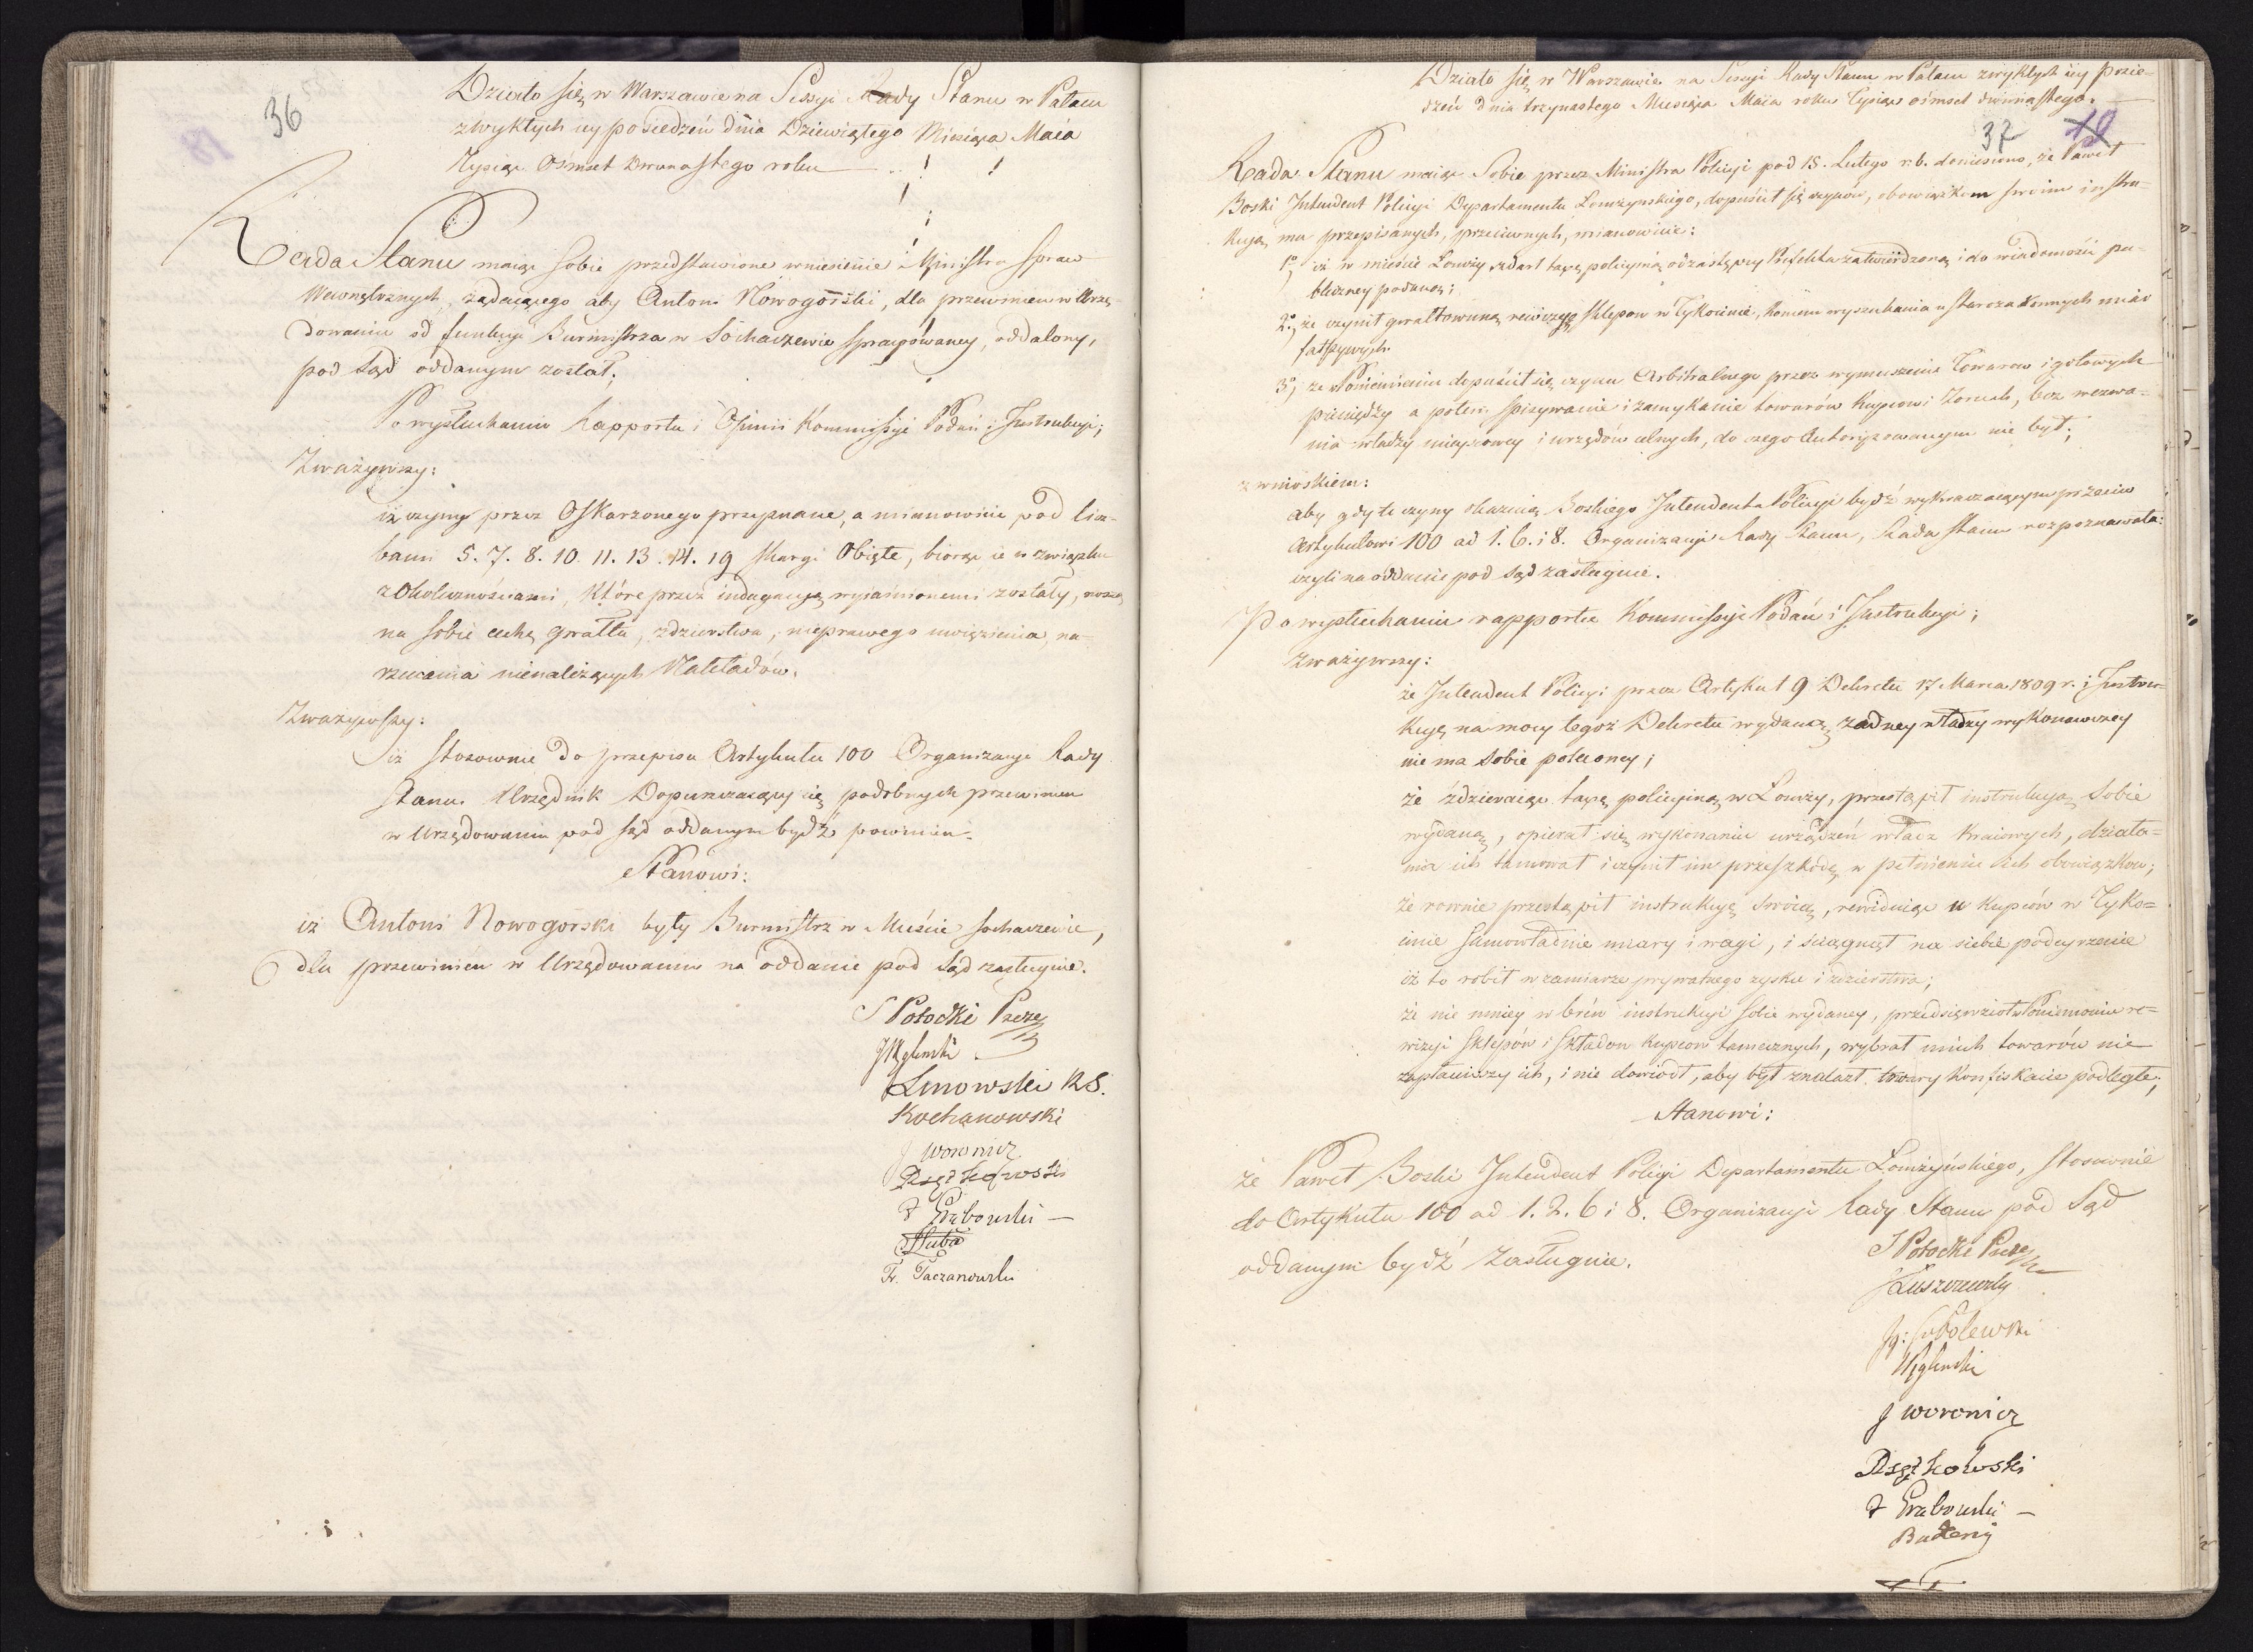 36
Działo się w Warszawie na Sessyi Rady Stanu w Pałacu
zwykłych iey posiedzeń dnia Dziewiątego Miesiąca Maia
Tysiąc Ośmset Dwunastego roku
Rada Stanu maiąc sobie przedstawione wniesienie Ministra Spraw
Wewnętrznych, żądaiącego aby Antoni Nowogórski, dla przewinień w Urzę-
dowaniu od funkcyi Burmistrza w Sochaczewie sprawowaney, oddalony,
pod Sąd oddanym został;
Po wysłuchaniu Rapportu i Opinii Kommissyi Podań i Instrukcyi;
Zważywszy:
iż czyny przez Oskarżonego przyznane, a mianowicie pod licz-
bami 5. 7. 8. 10. 11. 13. 14. 19 skargi Obięte, biorąc ie w związku
z Okolicznościami, które przez indagacyą wyiaśnionemi zostały, noszą
na sobie cechę gwałtu, zdzierstwa, nieprawego uwięzienia, na-
rzucania nienależących Nakładów.
Zważywszy:
iż stosownie do przepisu Artykułu 100 Organizacyi Rady
Stanu Urzędnik Dopuszczaiący się podobnych przewinień
w Urzędowaniu pod sąd oddanym bydź powinien.
Stanowi:
iż Antoni Nowogórski były Burmistrz w Mieście Sochaczewie,
dla przewinień w Urzędowaniu na oddanie pod Sąd zasługuie.
S Potocki Preze
Węgleński
Linowski RS.
Kochanowski
J Woronicz
Rzętkowski
F Grabowski
Fr. Taczanowski
Działo się w Warszawie na Sessyi Rady Stanu w Pałacu zwykłych iey posie-
dzeń dnia trzynastego Miesiąca Maia roku Tysiąc ośmset dwunastego.
37
Rada Stanu maiąc Sobie przez Ministra Policyi pod 15. Lutego r. b. doniesiono, że Paweł
Boski Intendent Policyi Departamentu Łomżyńskiego, dopuścił się czynów, obowiązkom swoim instru-
kcyą mu przepisanych, przeciwnych, mianowicie:
1º, iż w mieście Łomży zdarł taxę policyiną od zastępcy Prefekta zatwierdzoną i do wiadomości pu-
bliczney podaną;
2º, że czynił gwałtowną rewizyą sklepów w Tykocinie, końcem wyszukania u starozakonnych miar
fałszywych.
3º, że w Poniemoniu dopuścił się czynu Arbitralnego przez wymuszenie Towarów i gotowych
pieniędzy a potem spisywanie i zamykanie towarów Kupcowi Zoruch, bez wezwa-
nia władzy mieyscowey i urzędów celnych, do czego Autoryzowanym nie był;
z wnioskiem:
aby gdy te czyny okazuią Boskiego Intendenta Policyi bydź wykraczaiącym przeciw
Artykułowi 100 ad 1. 6. i 8. Organizacyi Rady Stanu, Rada Stanu rozpoznawała:
czyli na oddanie pod sąd zasługuie.
Po wysłuchaniu rapportu Kommissyi Podań i Instrukcyi;
Zważywszy:
że Intendent Policyi przez Artykuł 9 Dekretu 17 Marca 1809 r. i Instru-
kcyą na mocy tegoż Dekretu wydaną, żadney władzy wykonawczey
nie ma Sobie poleconey;
że zdzieraiąc taxę policyiną w Łomży, przestąpił instrukcyą Sobie
wydaną, opierał się wykonaniu urządzeń władz kraiowych, działa-
nia ich tamował i czynił im przeszkodę w pełnieniu ich obowiązków;
że rownie przestąpił instrukcyą swoią, rewiduiąc u kupców w Tyko-
cinie samowładnie miary i wagi, i ściągnął na siebie podeyrzenie
iż to robił w zamiarze prywatnego zysku i zdzierstwa;
że nie mniey wbrew instrukcyi sobie wydaney, przedsięwziął w Poniemoniu re-
wizyi sklepów i składów kupców tamecznych, wybrał u nich towarów nie
zapłaciwszy ich, i nie dowiódł, aby był znalazł towary konfiskacie podległe;
Stanowi:
że Paweł Boski Intendent Policyi Departamentu Łomżyńskiego, stosownie
do Artykułu 100 ad 1. 2. 6 i 8. Organizacyi Rady Stanu pod Sąd
oddanym bydź zasługuie.
S Potocki Preze
Łuszczewsky
Ig: Sobolewski
Węgleński
J Woronicz
Rzętkowski
F Grabowski
Badeni